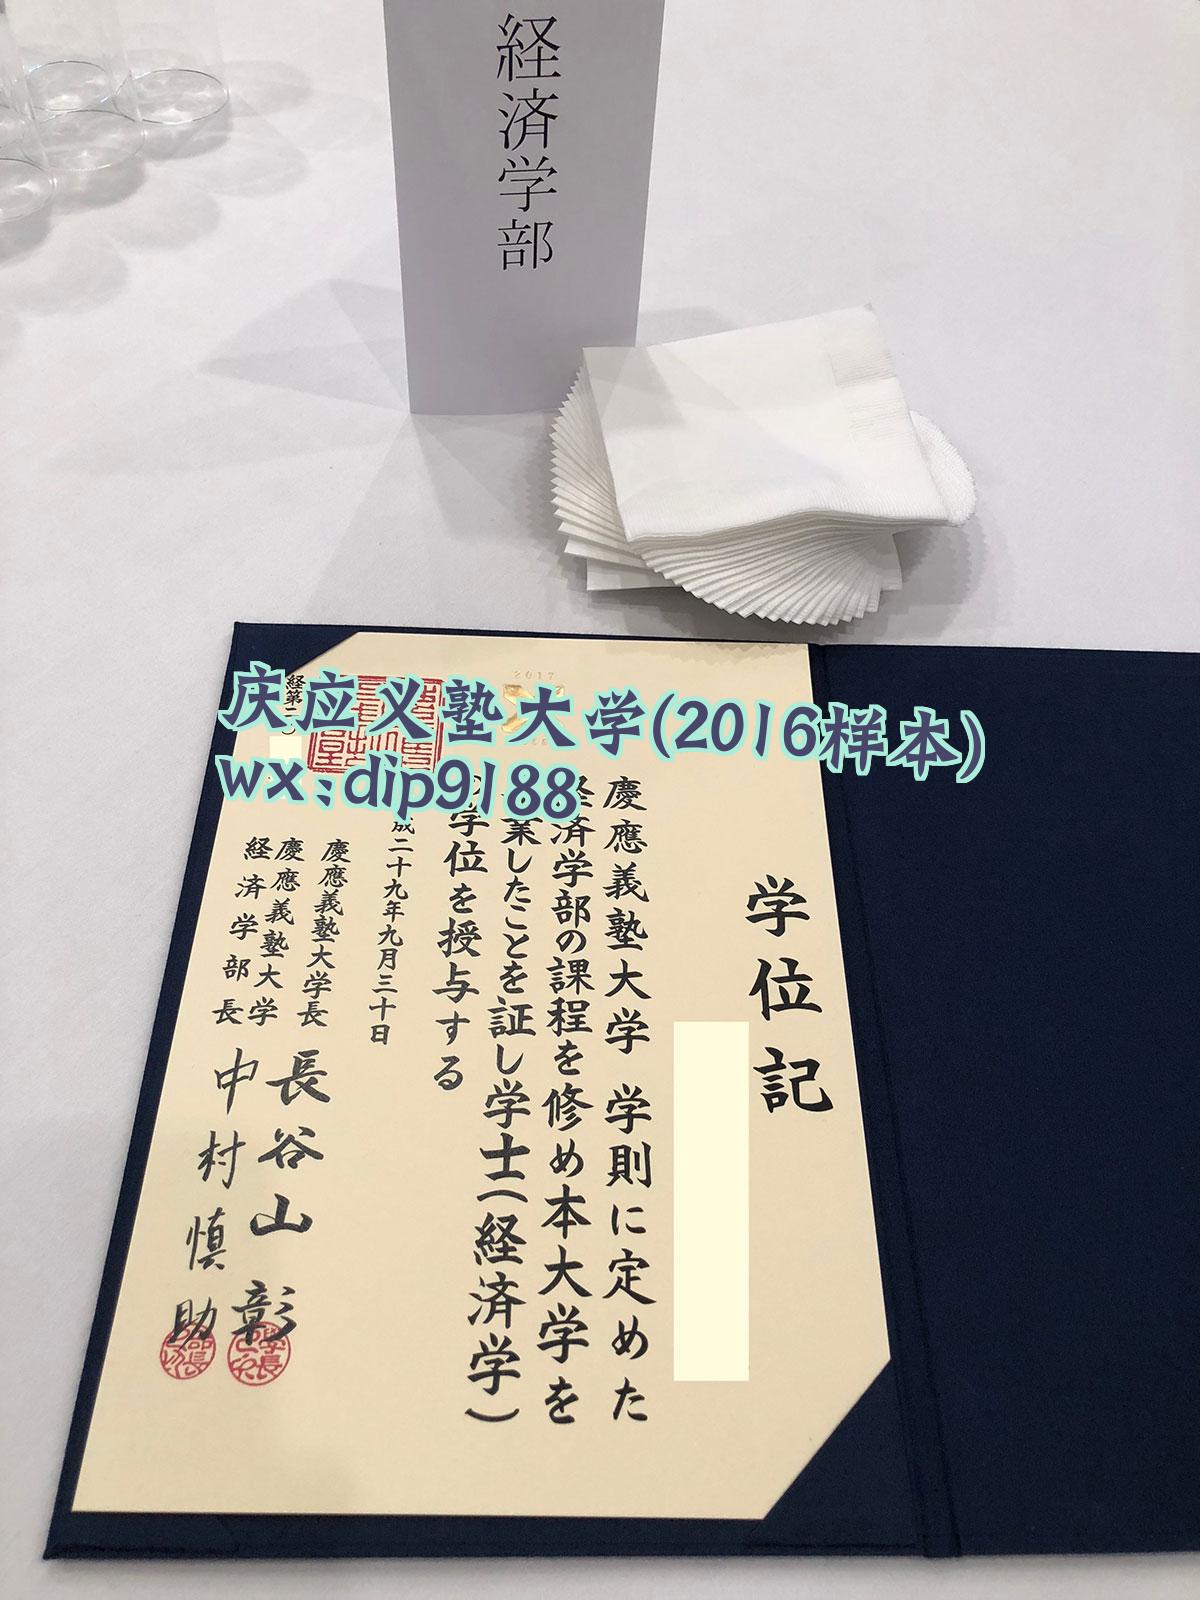 経済学部
庆应义塾大学(2016样本)
wx:dip9188
2017
学位記
慶應義塾大学 学則に定めた
経済学部の課程を修め本大学を
業したことを証し学士(経済学)
の学位を授与する
成二十九年九月三十日
慶應義塾大学長 長谷山 彰
慶應義塾大学
経済学部長 中村慎助
経第二〇